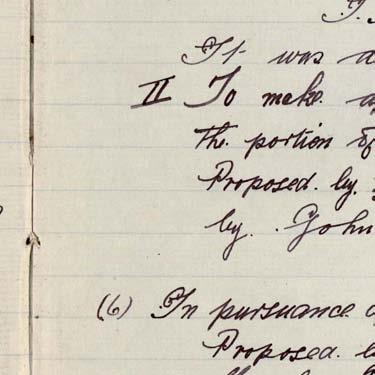 It was
II To make
the portion of
Proposed. by.
by. John
(6) In pursuance
Proposed.